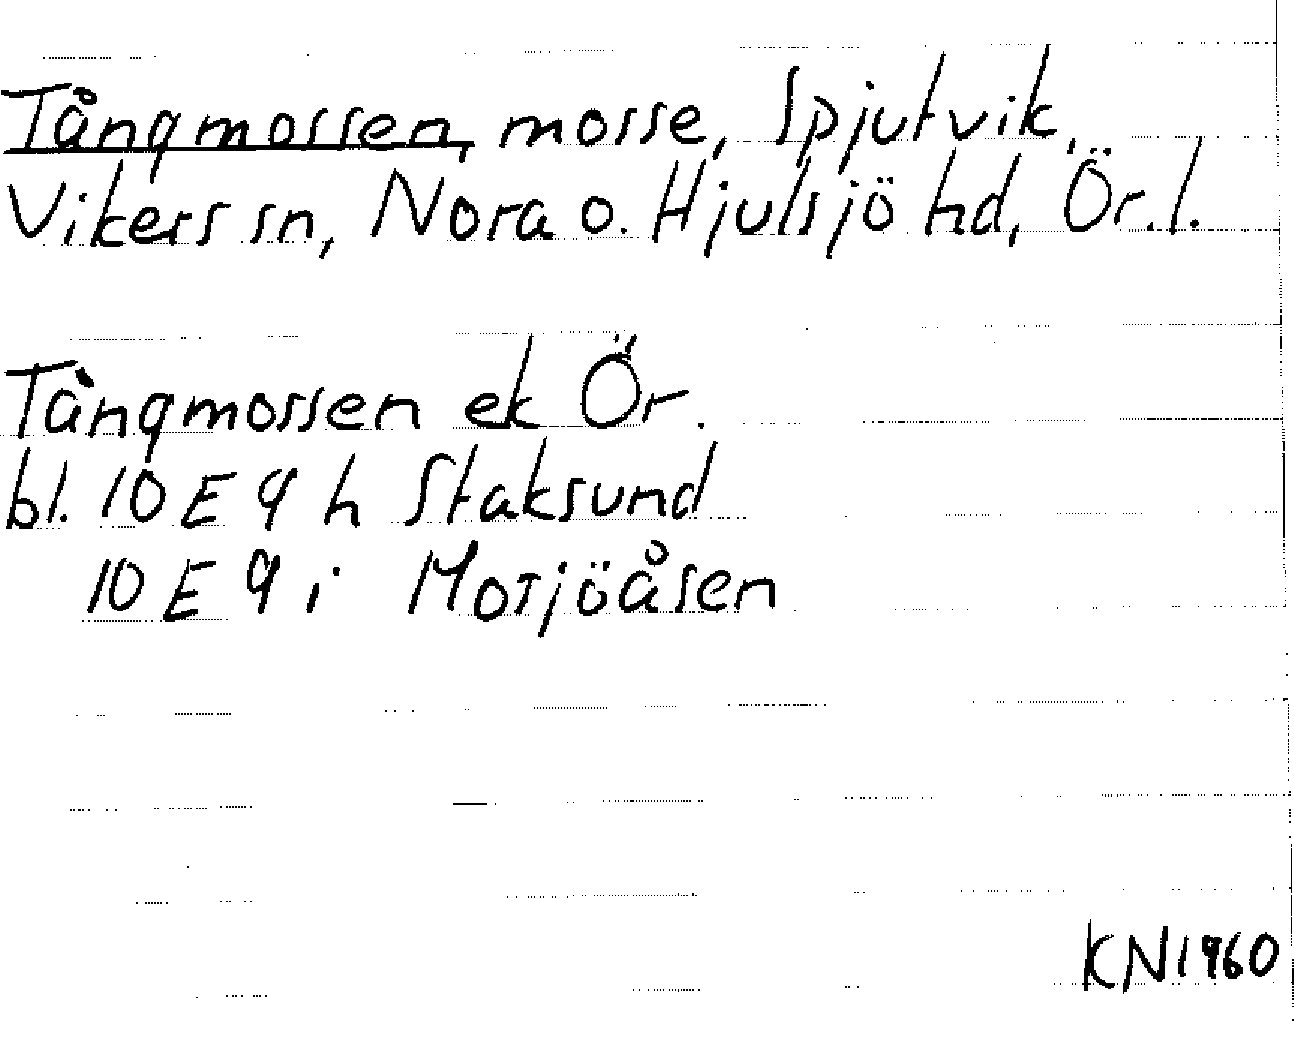 Tångmossen, mosse, Spjutvik,
Vikers sn, Nora o. Hjulsjö hd, Ör. l.
Tångmossen ek Ör.
bl. 10 E 9 h Staksund
10 E 9 i Motjöåsen
KN 1960